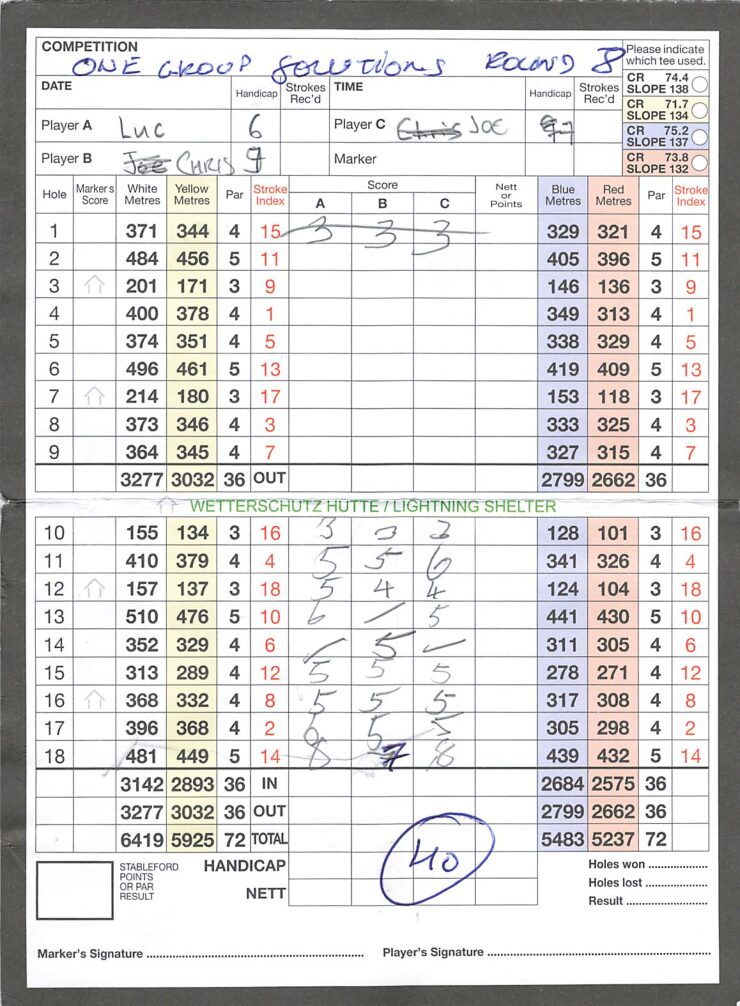 COMPETITION
ONE GROUP SOLUTIONS ROUND 8
Please indicate which tee used.
DATE Handicap Strokes Rec'd TIME Handicap Strokes Rec'd
CR 74.4 SLOPE 138
CR 71.7 SLOPE 134
CR 75.2 SLOPE 137
CR 73.8 SLOPE 132
Player A LUC 6 Player C Chris JOE
Player B Joe CHRIS Marker
Hole Marker's Score White Metres Yellow Metres Par Stroke Index Score A B C Nett or Points Blue Metres Red Metres Par Stroke Index
1 371 344 4 15 3 3 3 329 321 4 15
2 484 456 5 11 405 396 5 11
3 201 171 3 9 146 136 3 9
4 400 378 4 1 349 313 4 1
5 374 351 4 5 338 329 4 5
6 496 461 5 13 419 409 5 13
7 214 180 3 17 153 118 3 17
8 373 346 4 3 333 325 4 3
9 364 345 4 7 327 315 4 7
3277 3032 36 OUT 2799 2662 36
WETTERSCHUTZ HÜTTE / LIGHTNING SHELTER
10 155 134 3 16 3 128 101 3 16
11 410 379 4 4 5 5 6 341 326 4 4
12 157 137 3 18 5 4 4 124 104 3 18
13 510 476 5 10 6 / 5 441 430 5 10
14 352 329 4 6 / 5 / 311 305 4 6
15 313 289 4 12 5 5 5 278 271 4 12
16 368 332 4 8 5 5 5 317 308 4 8
17 396 368 4 2 5 5 305 298 4 2
18 481 449 5 14 8 7 8 439 432 5 14
3142 2893 36 IN 2684 2575 36
3277 3032 36 OUT 2799 2662 36
6419 5925 72 TOTAL 5483 5237 72
40
STABLEFORD POINTS OR PAR RESULT
HANDICAP
NETT
Holes won
Holes lost
Result
Marker's Signature Player's Signature